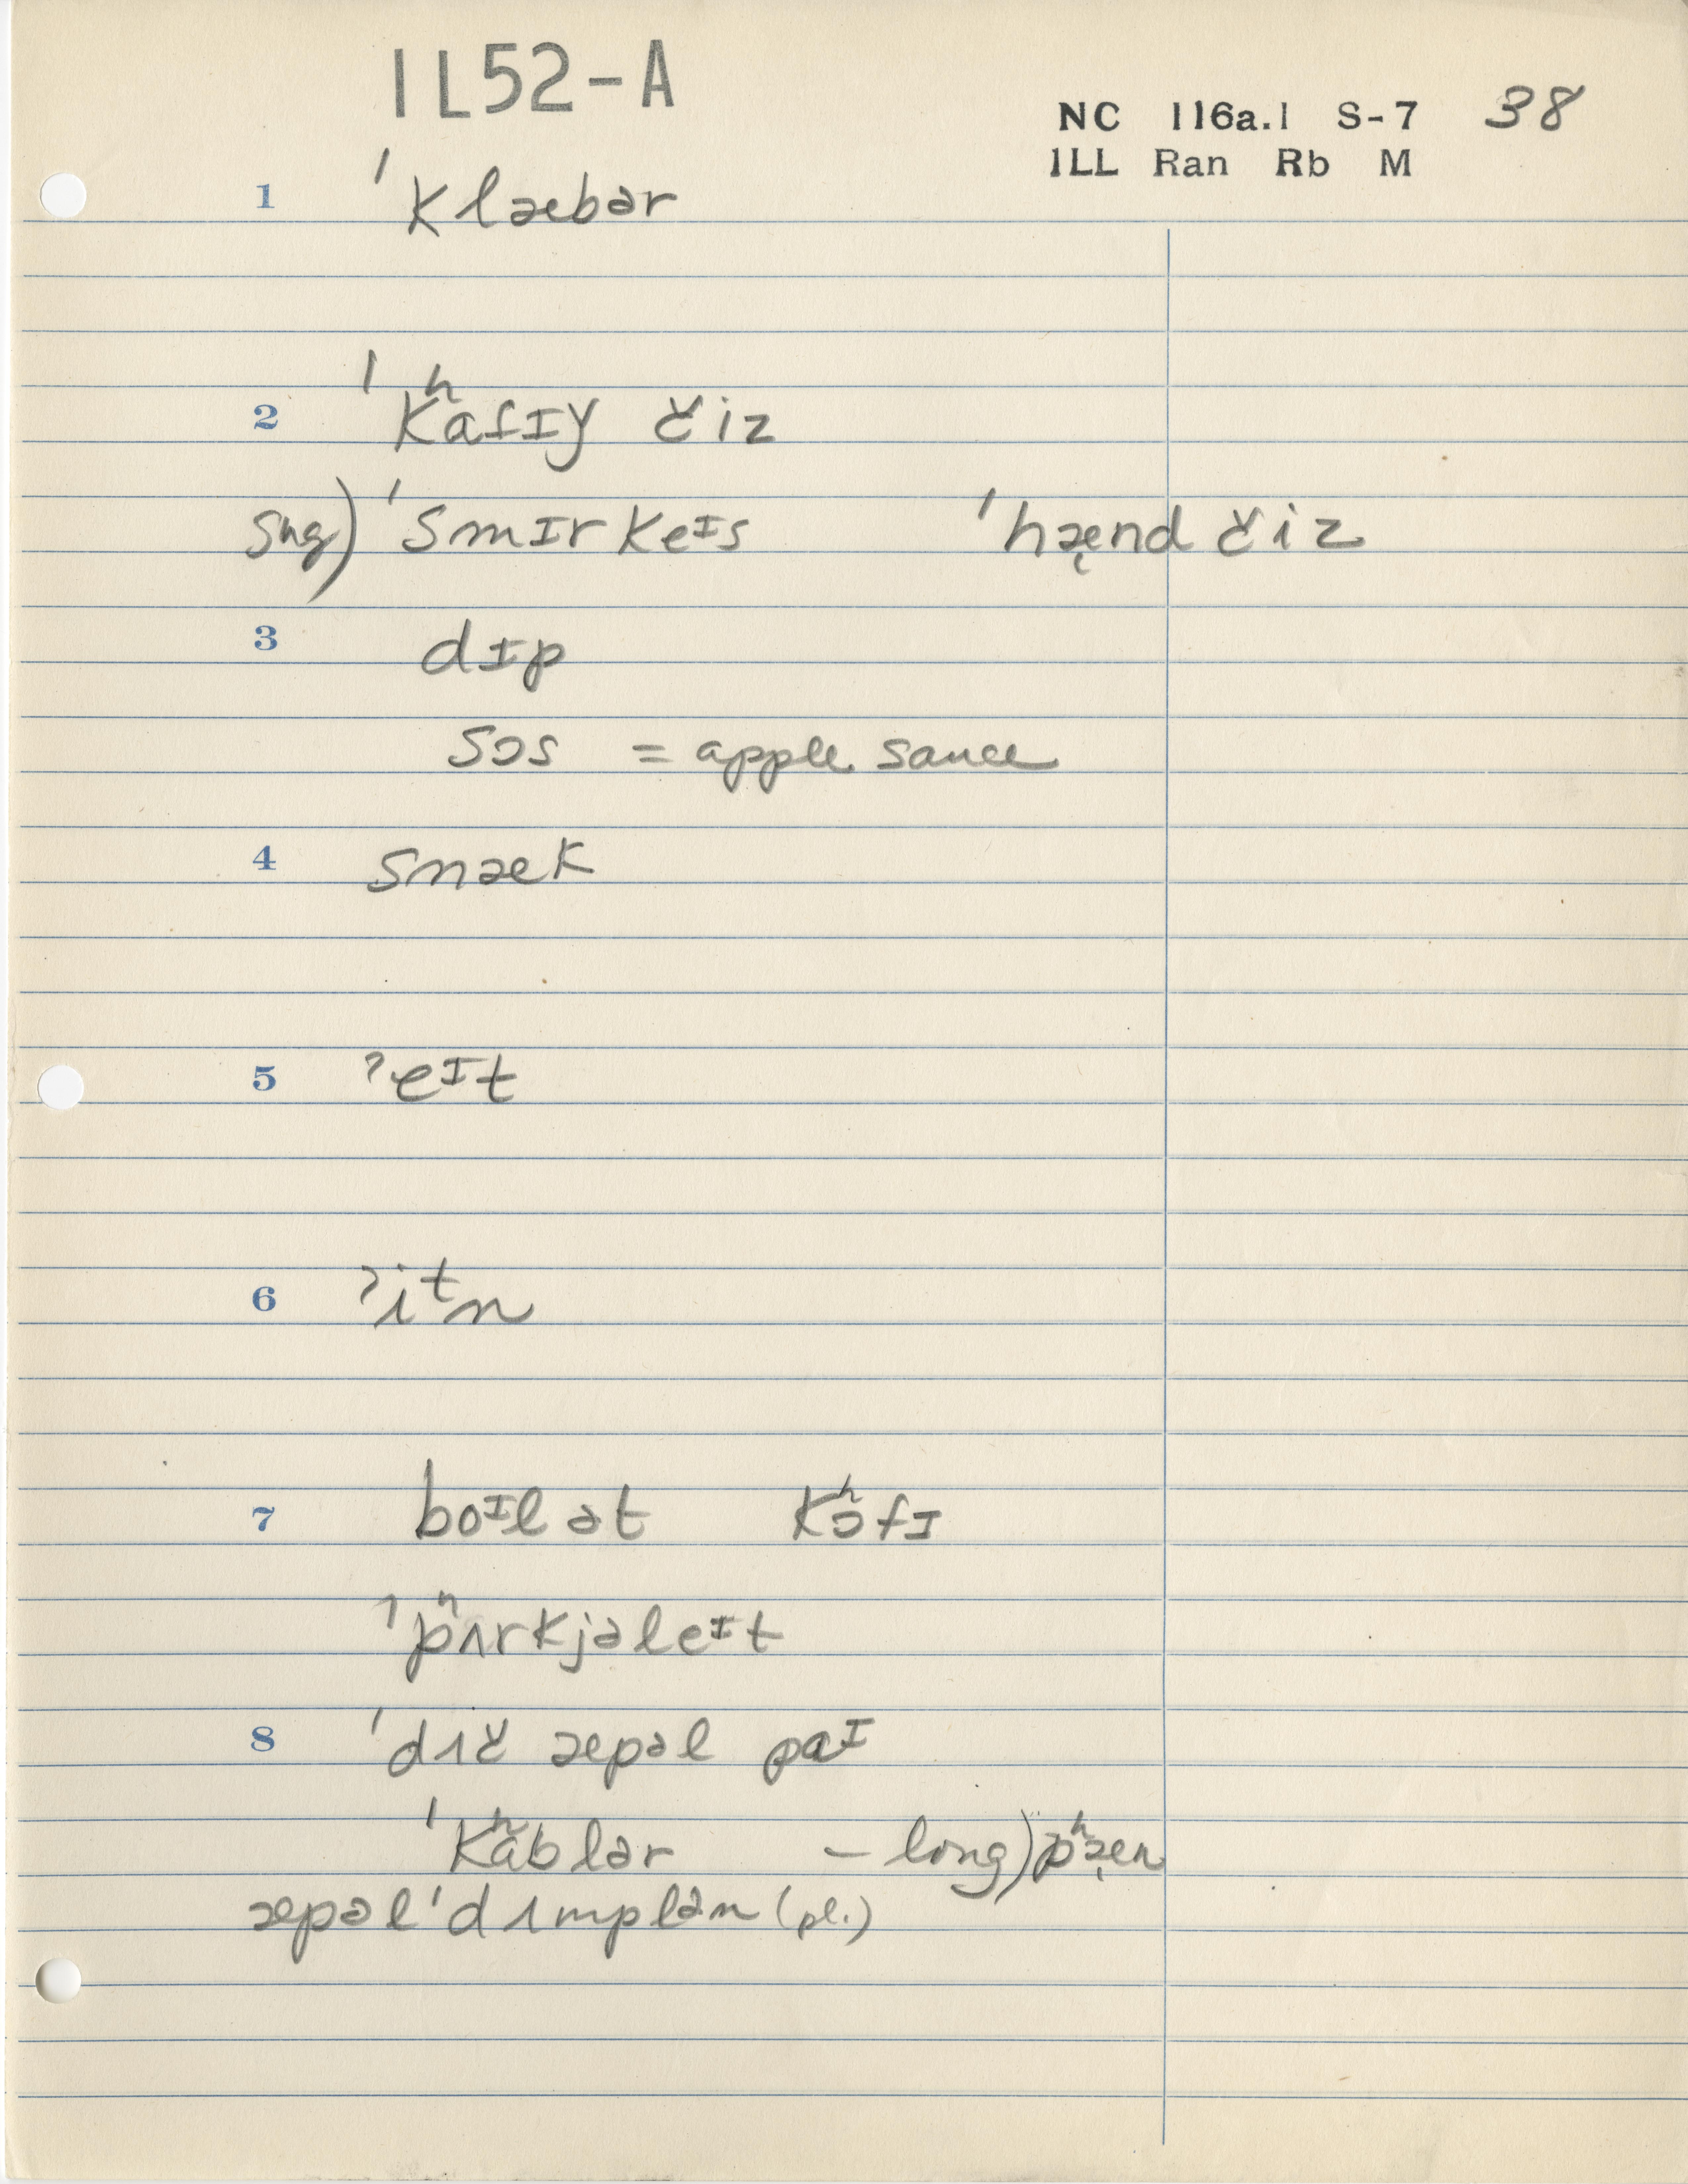 IL52-A
NC 116a.1 S-7 38
ILL Ran Rb M
1 ˈklæbər
2 ˈkʰɑtɪʝ čiz
sug) ˈsmɪrkeᴵs ˈhæ̨nd čiz
3 dɪp
sɔs = apple sauce
4 snæk
5 ˀeᴵt
6 ˀiᵗn
7 boᴵl ət kʰɔfɪ
ˈpʰʌrkjəleᴵt
8 ˈdɪč æpəl pɑᴵ
ˈkʰɑblər - long) pʰæ̨n
æpəl ˈdʌmplən (pl.)